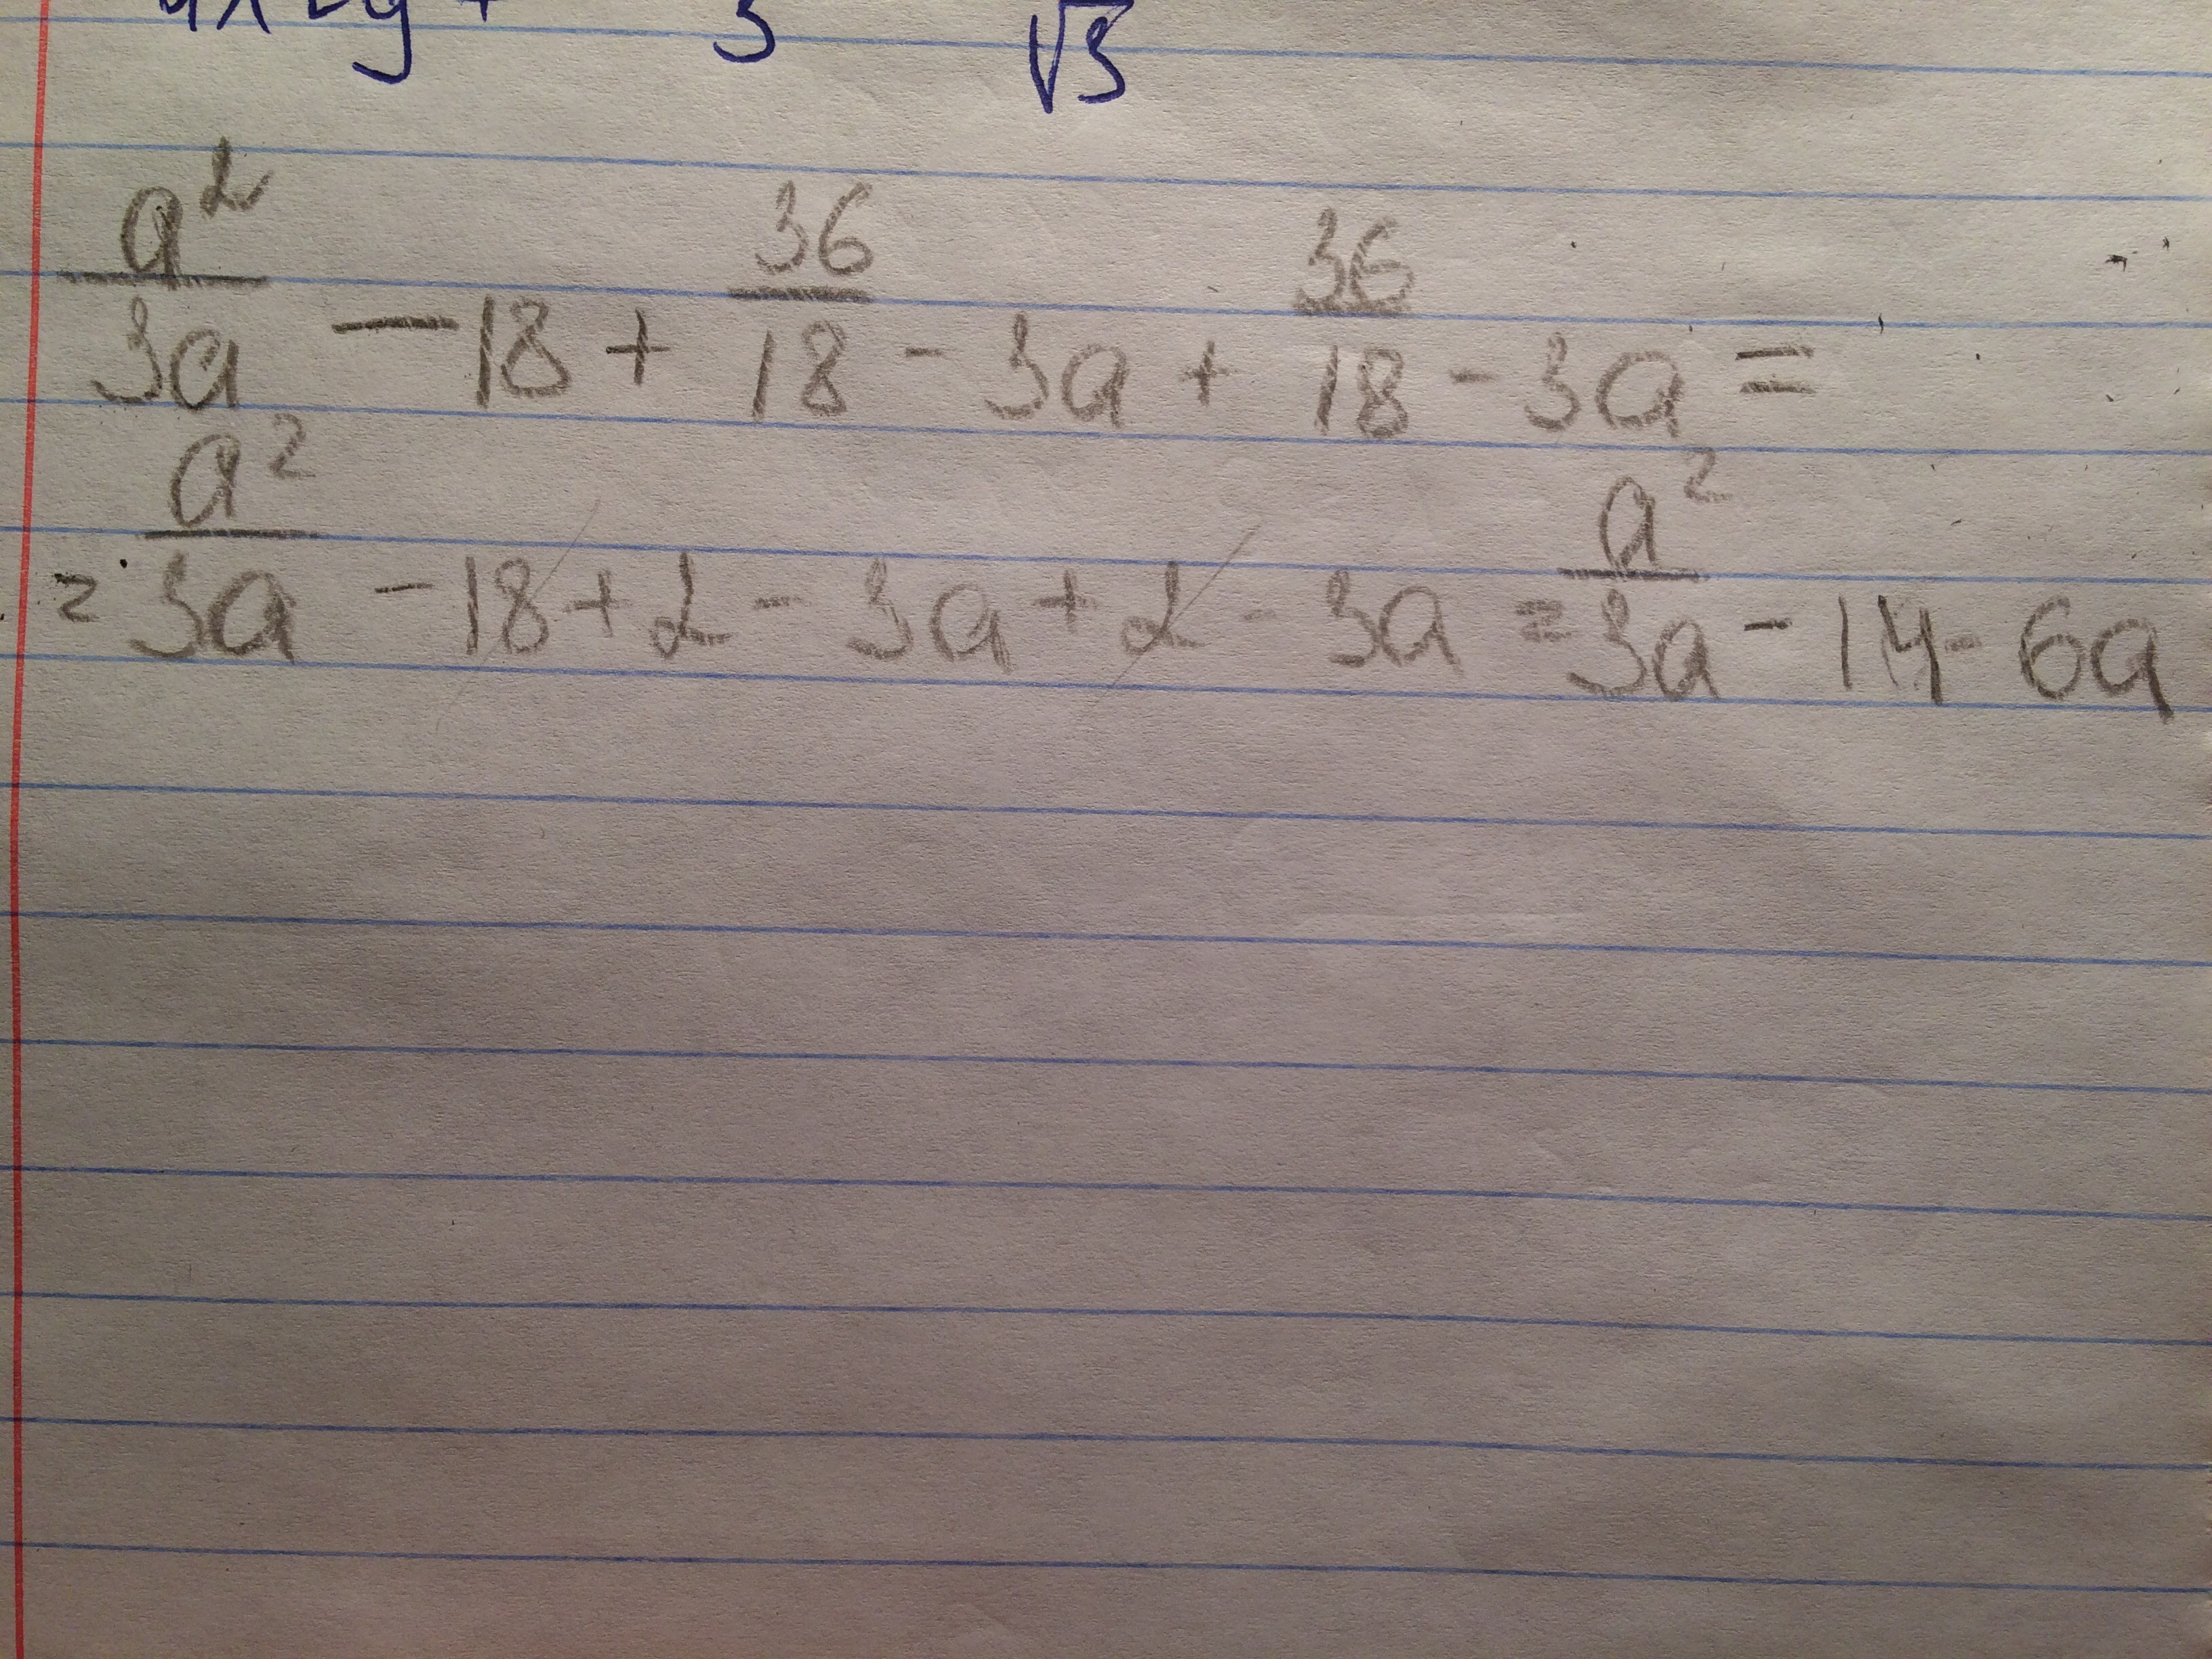 3 √3
a²/3a - 18 + 36/18 - 3a + 36/18 - 3a =
= a²/3a - 18 + 2 - 3a + 2 - 3a = a²/3a - 14 - 6a